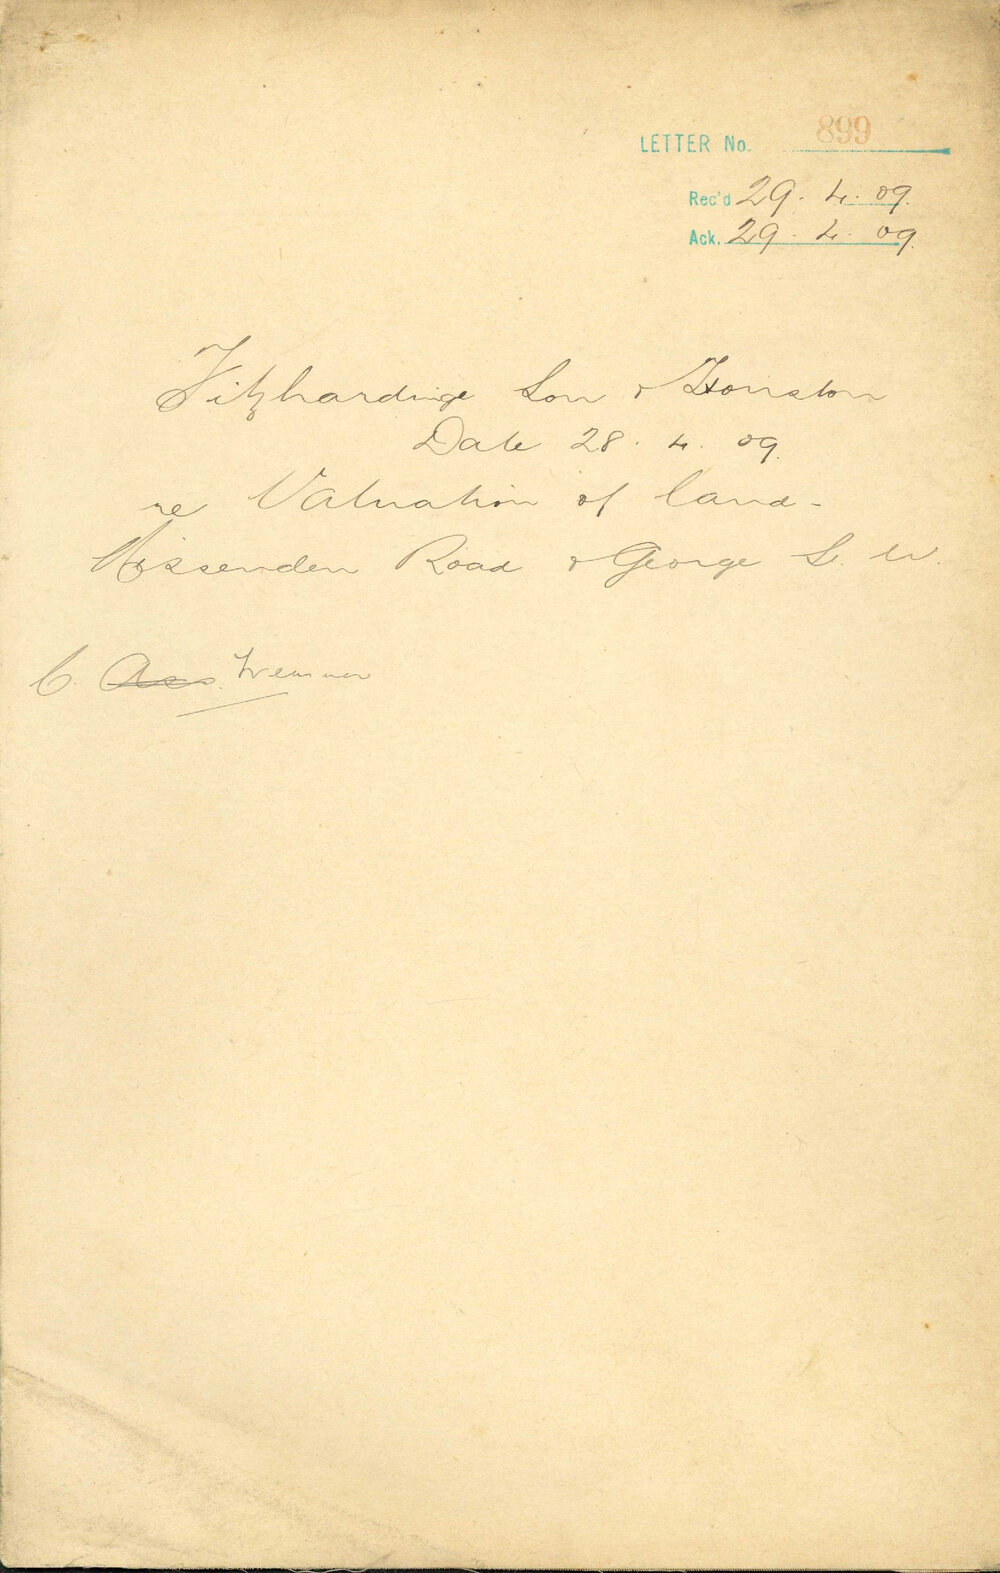 LETTER No. 899
Rec'd 29.4.09.
Ack. 29.4.09.
Fitzhardinge Son & Houston
Date 28.4.09.
re Valuation of land-
Missenden Road & George S. W.
C. Ass.